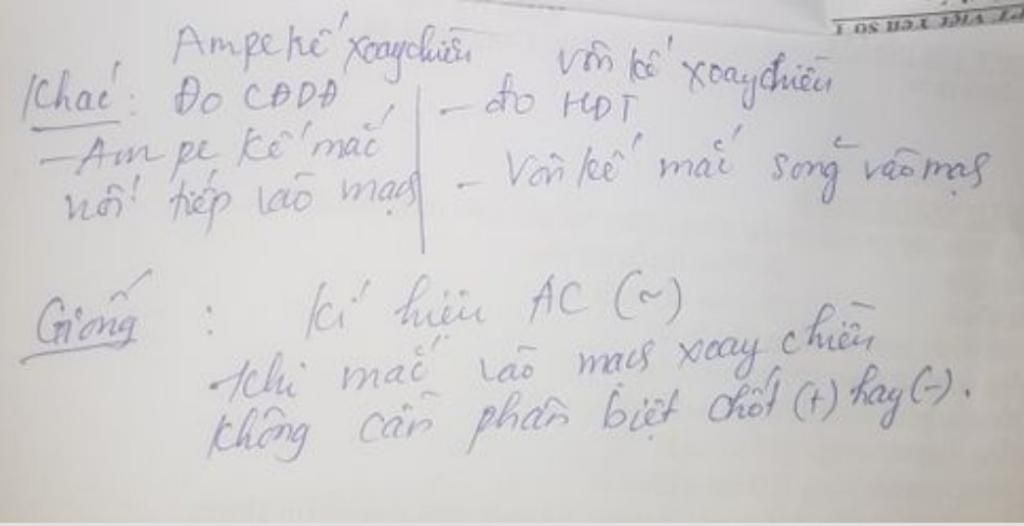 Ampe kế xoay chiều
Vôn kế xoay chiều
Khác: Đo CĐDĐ
- đo HĐT
- Ampe kế mắc
nối tiếp vào mạch
- Vôn kế mắc song vào mạch
Giống : Kí hiệu AC (~)
- Khi mắc vào mạch xoay chiều
không cần phân biệt chốt (+) hay (-).